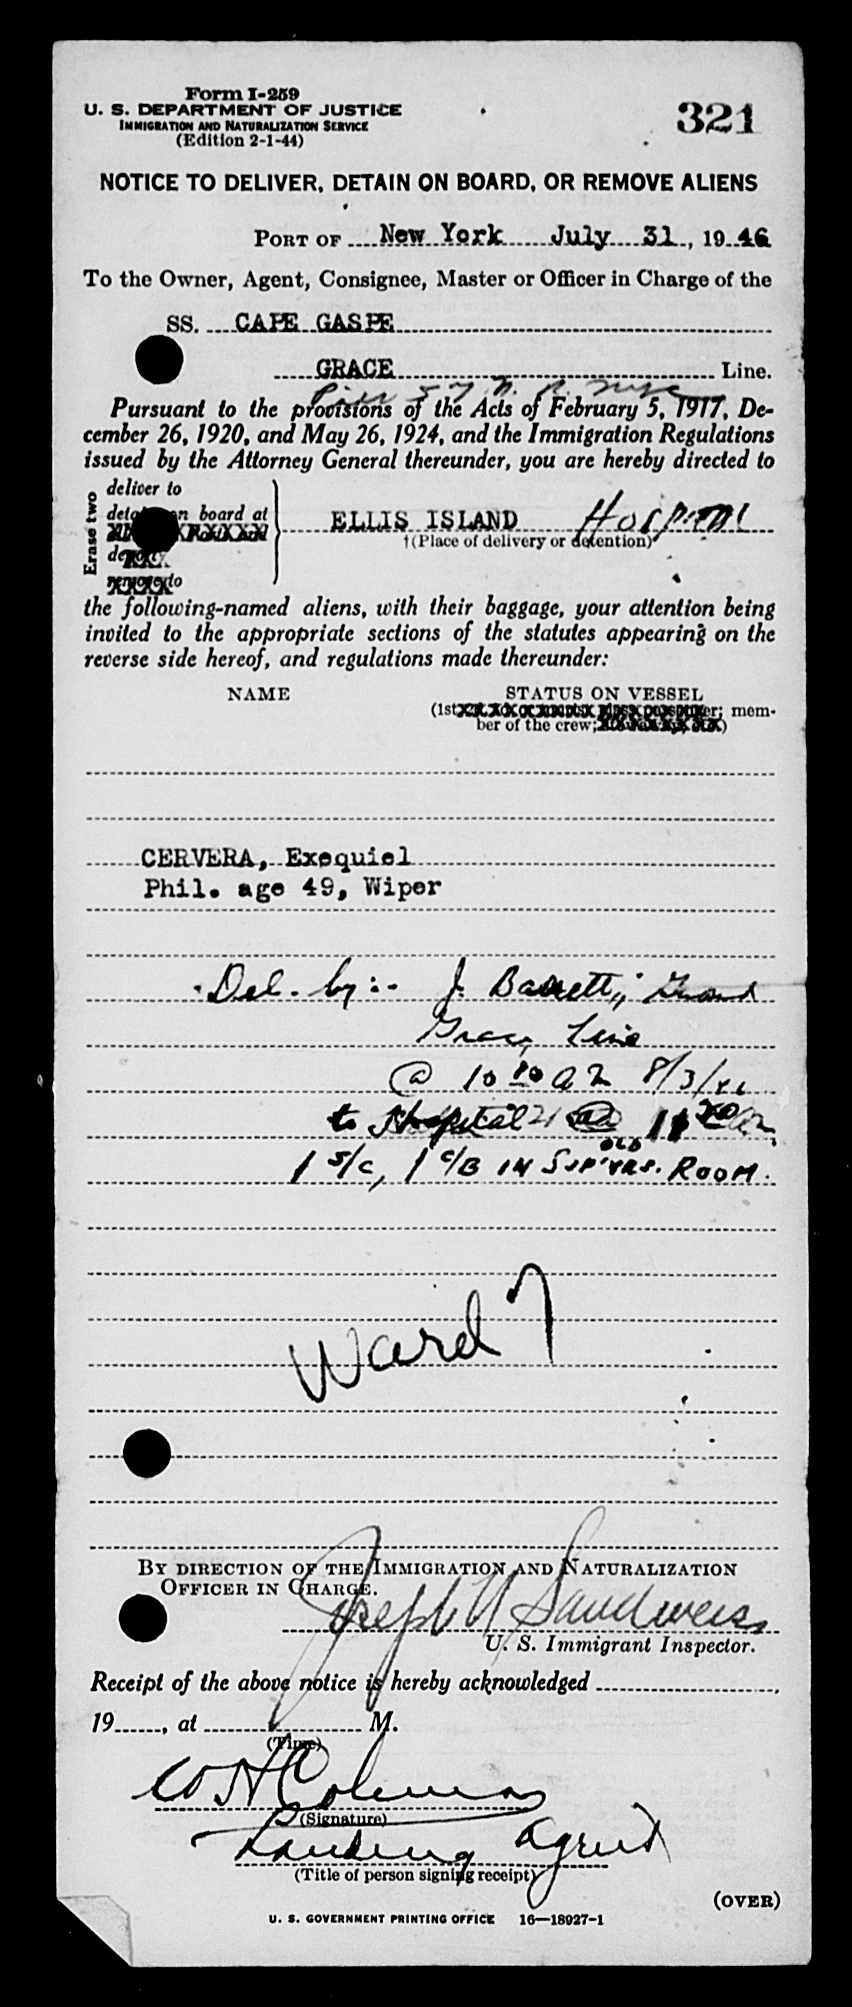 Form I-259
U. S. DEPARTMENT OF JUSTICE
IMMIGRATION AND NATURALIZATION SERVICE
(Edition 2-1-44)
321
NOTICE TO DELIVER, DETAIN ON BOARD, OR REMOVE ALIENS
PORT OF New York July 31, 1946
To the Owner, Agent, Consignee, Master or Officer in Charge of the
SS. CAPE GASPE
GRACE Line.
Pier 57 N. R. nyc
Pursuant to the provisions of the Acts of February 5, 1917, De-
cember 26, 1920, and May 26, 1924, and the Immigration Regulations
issued by the Attorney General thereunder, you are hereby directed to
Erase two
deliver to
detain on board at
ELLIS ISLAND Hospital
†(Place of delivery or detention)
remove to
the following-named aliens, with their baggage, your attention being
invited to the appropriate sections of the statutes appearing on the
reverse side hereof, and regulations made thereunder:
NAME STATUS ON VESSEL
(1st passenger; mem-
ber of the crew; )
CERVERA, Exequiel
Phil. age 49, Wiper
Del. by:- J. Barrett; Guard
Grace Line
@ 10 a 8/3/46
to Hospital
1 S/C, 1 C/B IN OLD SUP'VRS. ROOM.
Ward 7
BY DIRECTION OF THE IMMIGRATION AND NATURALIZATION
OFFICER IN CHARGE.
Joseph Sandweiss
U. S. Immigrant Inspector.
Receipt of the above notice is hereby acknowledged
19 , at M.
(Time)
W H Coleman
(Signature)
Landing Agent
(Title of person signing receipt)
(OVER)
U. S. GOVERNMENT PRINTING OFFICE 16—18927-1